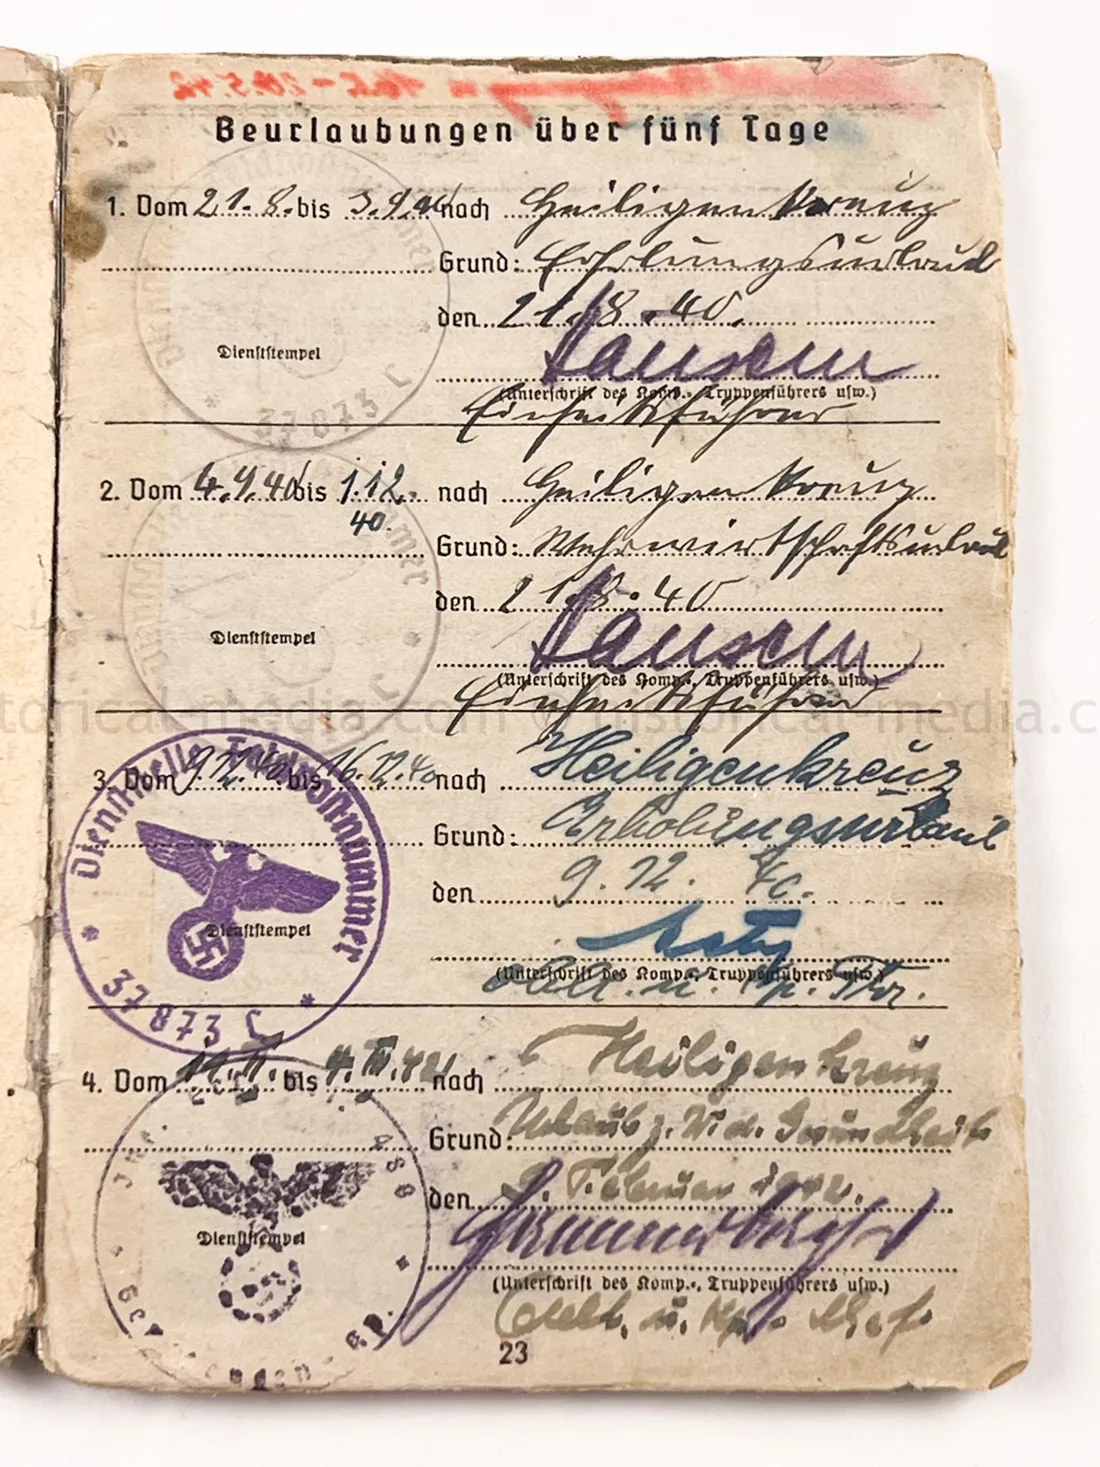 16.5.-20.5.42
Beurlaubungen über fünf Tage
1. Vom 21.8. bis 3.9.40 nach Heiligen Kreuz
Grund: Erholungsurlaub
den 21.8.40.
Dienststempel
(Unterschrift des Komp.-, Truppenführers usw.)
Einheitsführer
37873
2. Vom 4.9.40 bis 1.12. nach Heiligen Kreuz
40.
Grund: Wehrwirtschaftsurlaub
den 21.8.40
Dienststempel
(Unterschrift des Komp.-, Truppenführers usw.)
Einheitsführer
historical-media.com
3. Vom 9.12.40 bis 16.12.40 nach Heiligenkreuz
Grund: Erholungsurlaub
den 9.12.40.
Dienststelle Feldpostnummer
37873 C
Dienststempel
(Unterschrift des Komp.-, Truppenführers usw.)
Oblt. u. Kp. Fhr.
4. Vom bis 4.III.42 nach Heiligenkreuz
Grund: Urlaub
den Februar 1942.
Dienststempel
(Unterschrift des Komp.-, Truppenführers usw.)
Oblt. u. Kp. Chef.
23